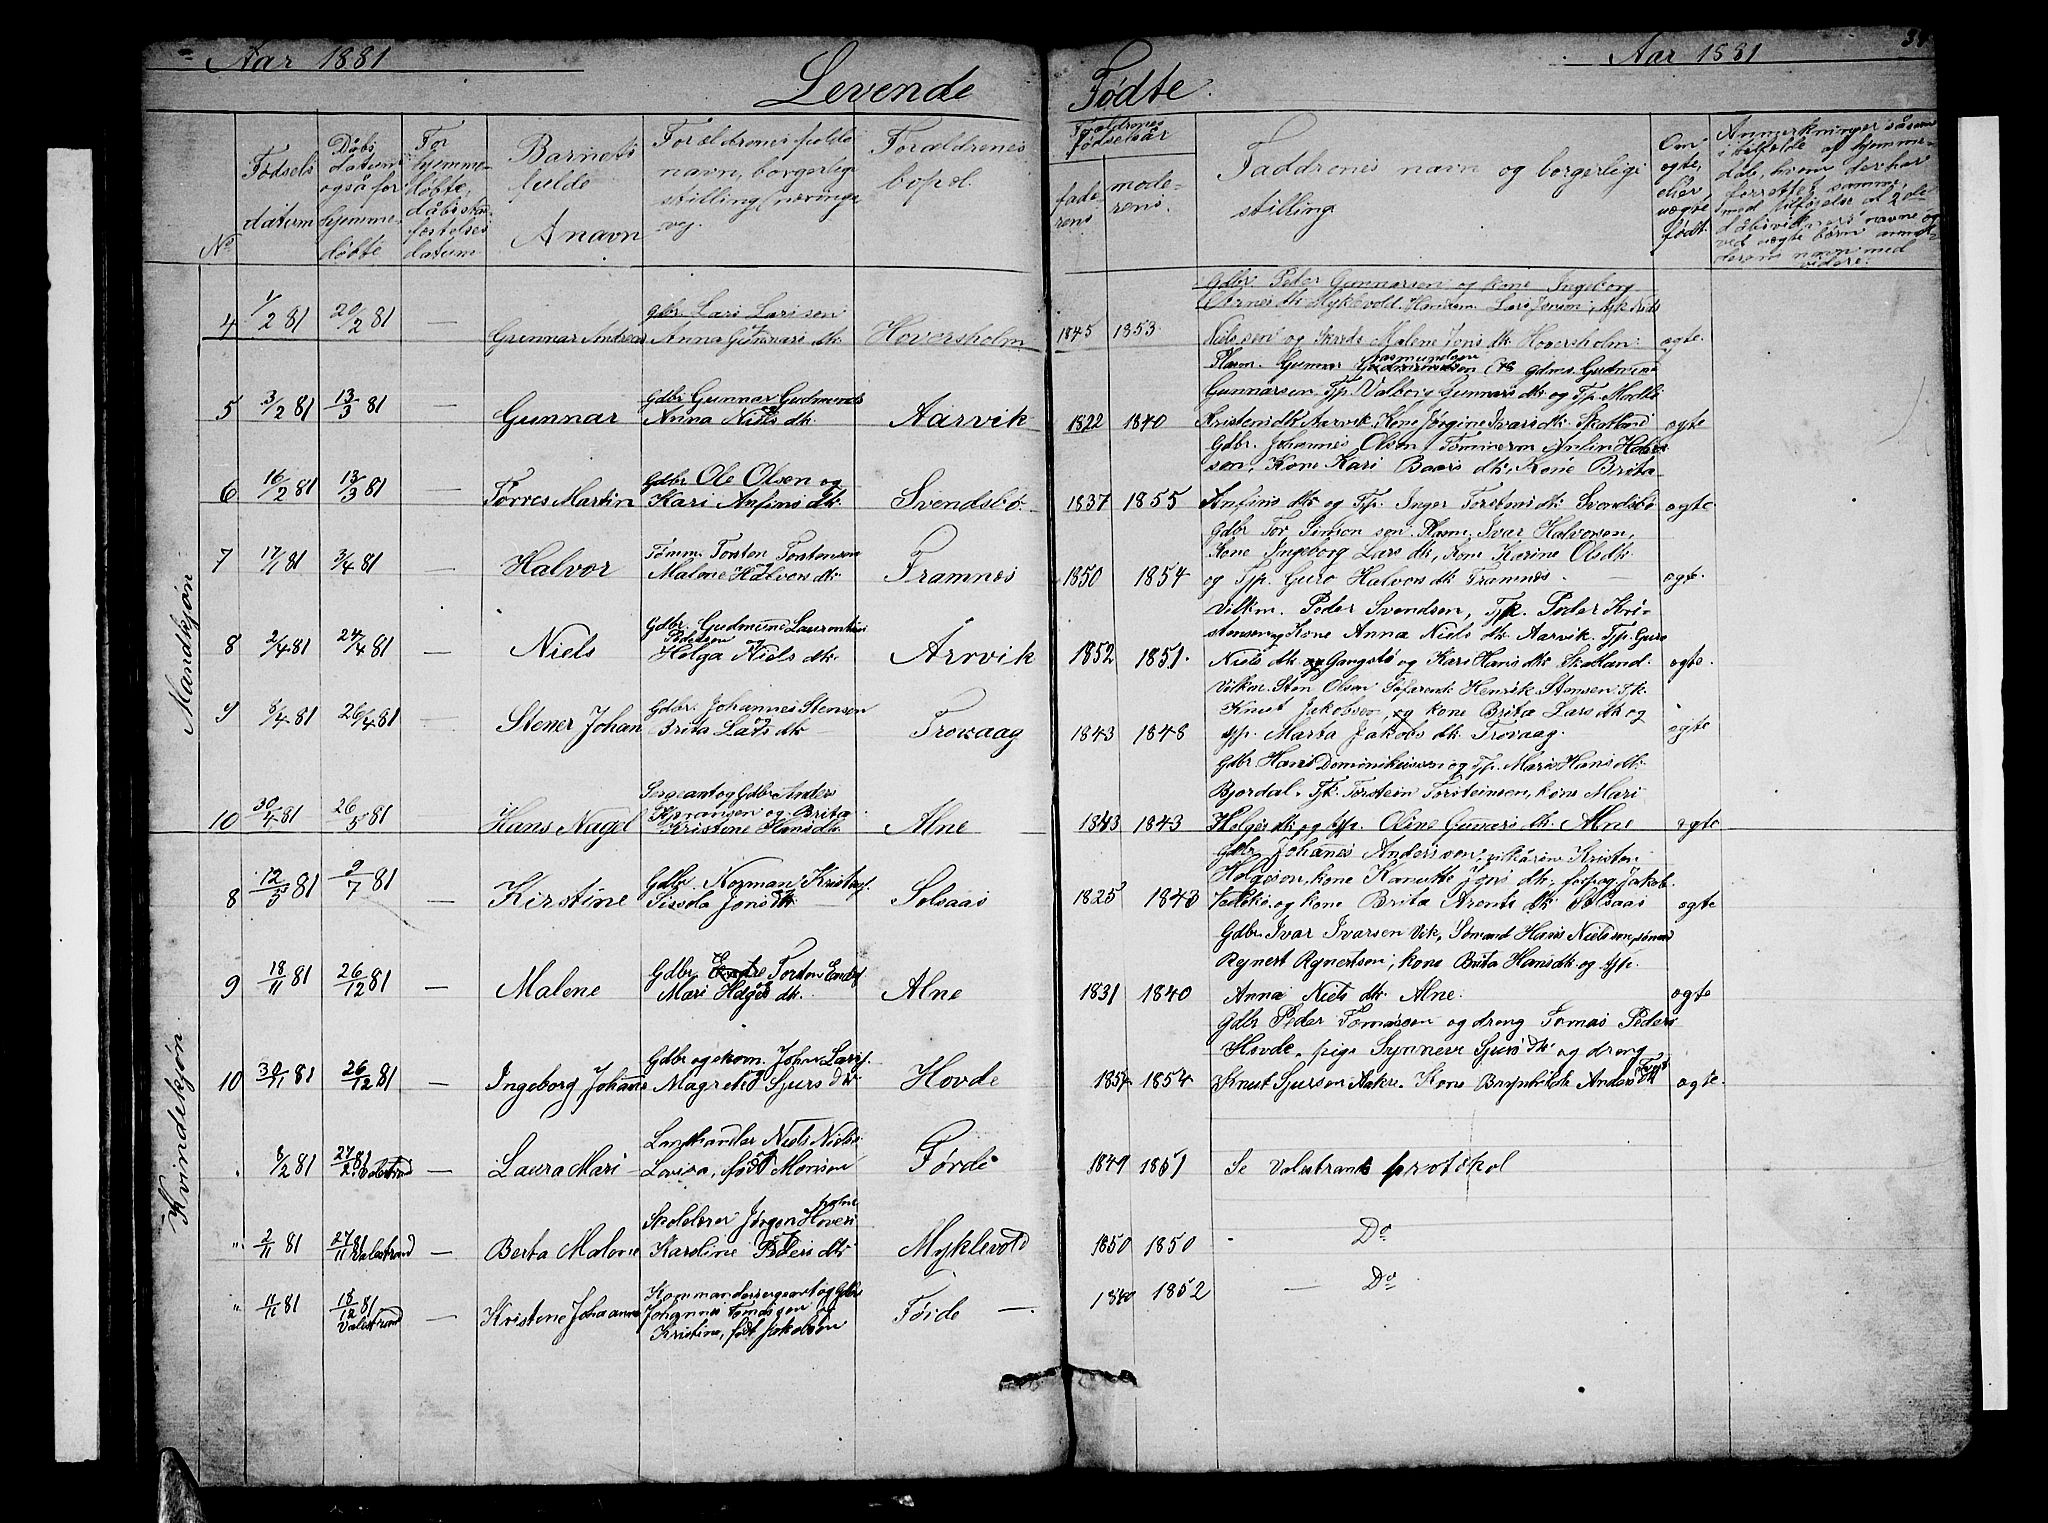 Aar 1881
Aar 1881
Levende Fødte.
No
Fødsels datum
Dåbs datum også for hjemmedøbte
For hjemmedøbte, dåbsstadfæstelses datum
Barnets fulde navn
Forældrenes fulde navn, borgerlige stilling (næringsvej.
Forældrenes bopæl.
Forældrenes fødselsår
faderens
moderens.
Faddrenes navn og borgerlige stilling
Om ægte, eller uægte født.
Anmerkninger såsom i tilfælde af hjemmedåb, hvem der har forrettet samme,
Mandkjøn.
Gdbr. Peder Gunnarsen og kone Ingeborg
4 1/2 81 20/2 81 — Gunnar Andreas
gbr. Lars Larssen
Anna Gunnars dk.
Hoversholm
1845 1853
Nielssen og Malene Jons dk. Hoversholm. ægte.
5 3/2 81 13/3 81 — Gunnar
Gdbr Gunnar Gudmunds
Anna Niels dk.
Aarvik
1822 1840
Gunnarsen Tjp. Valborg Gunnars dk og Tjp. Madli
Kristens dk Aarvik, Kone Jørgine Ivars dk. Skotland ægte
6 16/2 81 13/3 81 — Tørres Martin
Gdbr Ole Olsen og
Kari Anfins dk.
Svendsbø
1837 1855
Gdbr. Johannes Olsen Tømmerm Anfin Halvor-
sen, Kone Kari Baars dk. Kone Brita
Anfins dk. og Tjp. Inger Torstens dk. Svendsbø ægte
7 17/1 81 3/4 81 — Halvor
Tømm. Torsten Torstensen
Malene Halvors dk.
Framnes
1850 1854
Gdbr Tor Simonsen Plasm. Ivar Halvorsen,
Kone Ingeborg Lars dk, kone Karine Ols dk
og Tjp. Guro Halvors dk Framnes. ægte.
8 2/4 81 24/4 81 — Niels
Gdbr. Gudmund Laurentius
Pedersen og
Helga Niels dk.
Årvik
1852 1851.
Vilkm. Peder Svendsen, Tjk. Peder Kri-
stensen, Kone Anna Niels dk. Aarvik. Tjp. Guro
Niels dk. Gangstø og Kari Hans dk. Skotland. ægte.
9 8/4 81 26/4 81 — Stener Johan
Gdbr. Johannes Stensen
Brita Lars dk
Trovaag
1843 1848
Vilkm. Sten Olsen Søfarende Henrik Stensen Tjk.
Knut Jakobsen, og kone Brita Lars dk og
tjp. Marta Jakobs dk. Trovaag. ægte
10 30/4 81 26/5 81 Hans Nagel
Sergeant og Gdbr Anders
og Brita
Kristene Hans dk.
Alne
1843 1843
Gdbr. Hans Dominikussen og Tjp. Maris Hans dk.
Bjordal. Tjk. Torstein Torsteinsen, kone Mari
Helges dk og tjp. Oline Gunnars dk. Alne ægte
Kvindekjøn.
8 12/5 81 9/7 81 — Kirstine
Gdbr. Norman Kristof.
Sissela Jons dk
Solsaas
1825 1843
Gdbr Johanes Anderssen, Kristen
Helgesen, kone Kanutte Jons dk. Jakob
og kone Brita Arents dk Solsaas ægte
9 18/11 81 26/12 81 — Malene
Gdbr. Torsten Endr.
Mari Helges dk.
Alne
1831 1840
Gdbr. Ivar Ivarsen Vik, Sømand Hans Nielssen, sømand
Rynert Rynertsen, kone Brita Hans dk. og tjp.
Anna Niels dk. Alne. ægte
10 30/11 81 26/12 81 — Ingeborg Johanne
Gdbr og skom. John Larss.
Magrete Sjurs dk
Hovde
1854 1854
Gdbr Peder Tomassen og dreng Tomas Peders
Hovde, pige Synneve Sjurs dk og dreng
Knut Sjursen Aakre. Kone Brynhilde Anders dk ægte.
" 8/2 81 27/2 81 Valestrand — Laura Mari
Landhandler Niels Niels.
Lovisa, født Monsen
Førde
1849 1851 Se Valestrands protokol
" 2/11 81 27/11 81 Valestrand — Berta Malene
Skolelærer Jørgen Hovers
holm
Karoline Peders dk.
Myklevold
1850 1850 Do
" 11/11 81 18/12 81 Valestrand — Kristene Johanne
Kommandersergeant og Gdbr
Johannes Tomassen og
Kristine, født Jakobsen
Førde
1840 1852 — Do